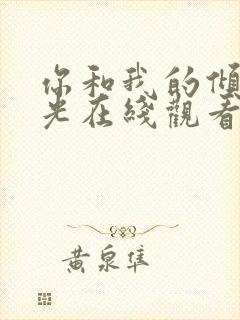 你和我的倾
光在线观看
黄泉隼